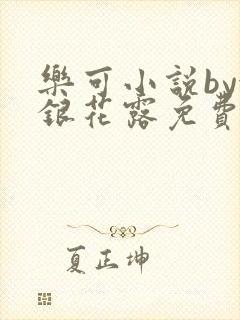 樂可小說by
銀花露免費
夏正坤